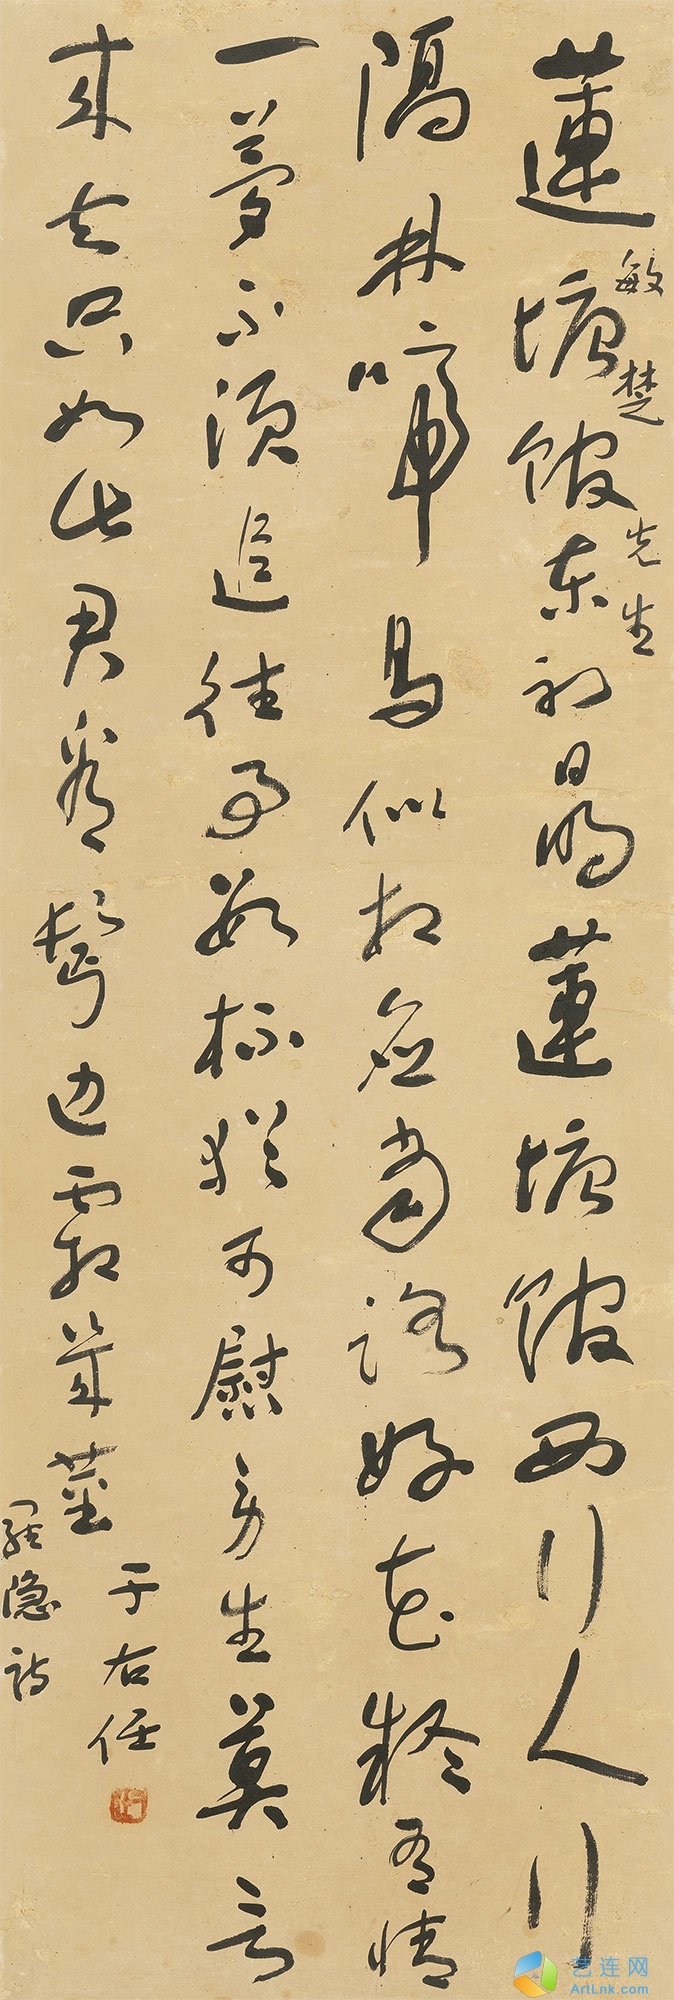 敏楚先生
蓮塘館東初日明蓮塘館西行人行
隔林啼鳥似相應當路好花疑有情
一夢不須追往事數杯猶可慰勞生莫言
來去只如此君看鬢邊霜幾莖
羅隱詩
于右任
艺连网
ArtLnk.com